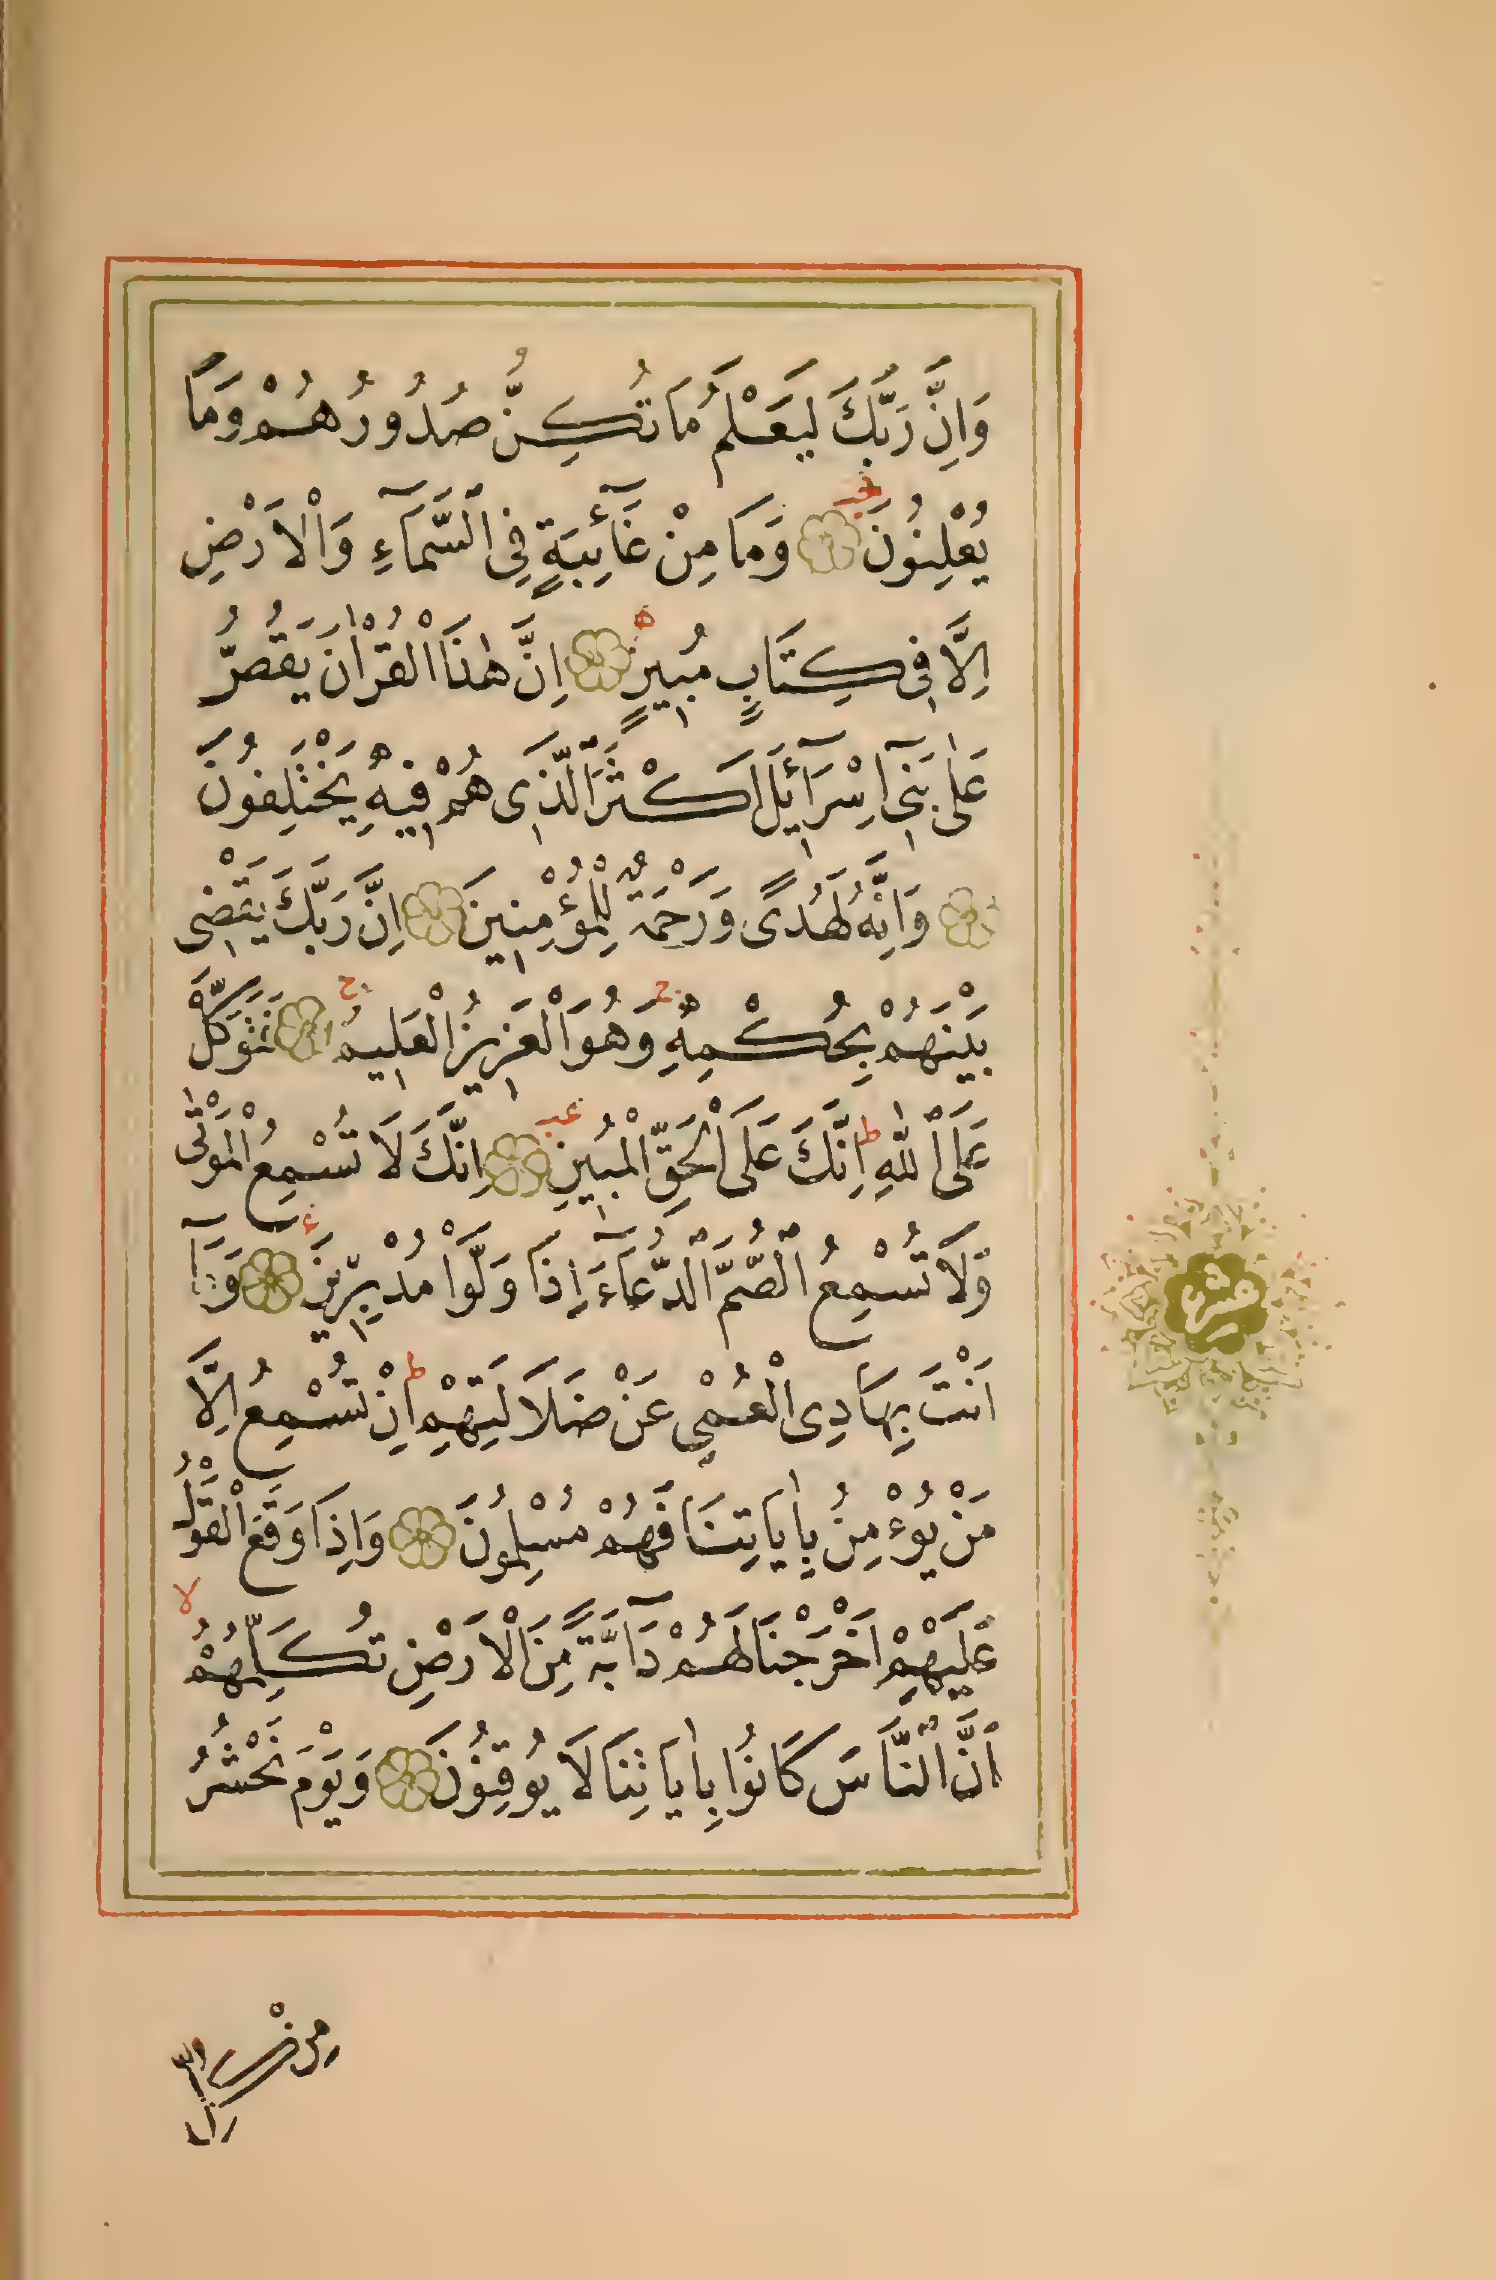 وَاِنَّ رَبَّكَ لَيَعْلَمُ مَا تُكِنُّ صُدُورُهُمْ وَمَا
يُعْلِنُونَ وَمَا مِنْ غَآئِبَةٍ فِى السَّمَآءِ وَالْاَرْضِ
اِلَّا فِى كِتَابٍ مُبِينٍ اِنَّ هٰذَا الْقُرْاٰنَ يَقُصُّ
عَلٰى بَنِىٓ اِسْرَآئِلَ اَكْثَرَ الَّذِى هُمْ فِيهِ يَخْتَلِفُونَ
وَاِنَّهُ لَهُدًى وَرَحْمَةٌ لِلْمُؤْمِنِينَ اِنَّ رَبَّكَ يَقْضِى
بَيْنَهُمْ بِحُكْمِهِ وَهُوَ الْعَزِيزُ الْعَلِيمُ فَتَوَكَّلْ
عَلَى اللّٰهِ اِنَّكَ عَلَى الْحَقِّ الْمُبِينِ اِنَّكَ لَا تُسْمِعُ الْمَوْتٰى
وَلَا تُسْمِعُ الصُّمَّ الدُّعَآءَ اِذَا وَلَّوْا مُدْبِرِينَ وَمَآ
اَنْتَ بِهَادِى الْعُمْىِ عَنْ ضَلَالَتِهِمْ اِنْ تُسْمِعُ اِلَّا
مَنْ يُؤْمِنُ بِاٰيَاتِنَا فَهُمْ مُسْلِمُونَ وَاِذَا وَقَعَ الْقَوْلُ
عَلَيْهِمْ اَخْرَجْنَا لَهُمْ دَآبَّةً مِنَ الْاَرْضِ تُكَلِّمُهُمْ
اَنَّ النَّاسَ كَانُوا بِاٰيَاتِنَا لَا يُوقِنُونَ وَيَوْمَ نَحْشُرُ
مِنْ كُلِّ